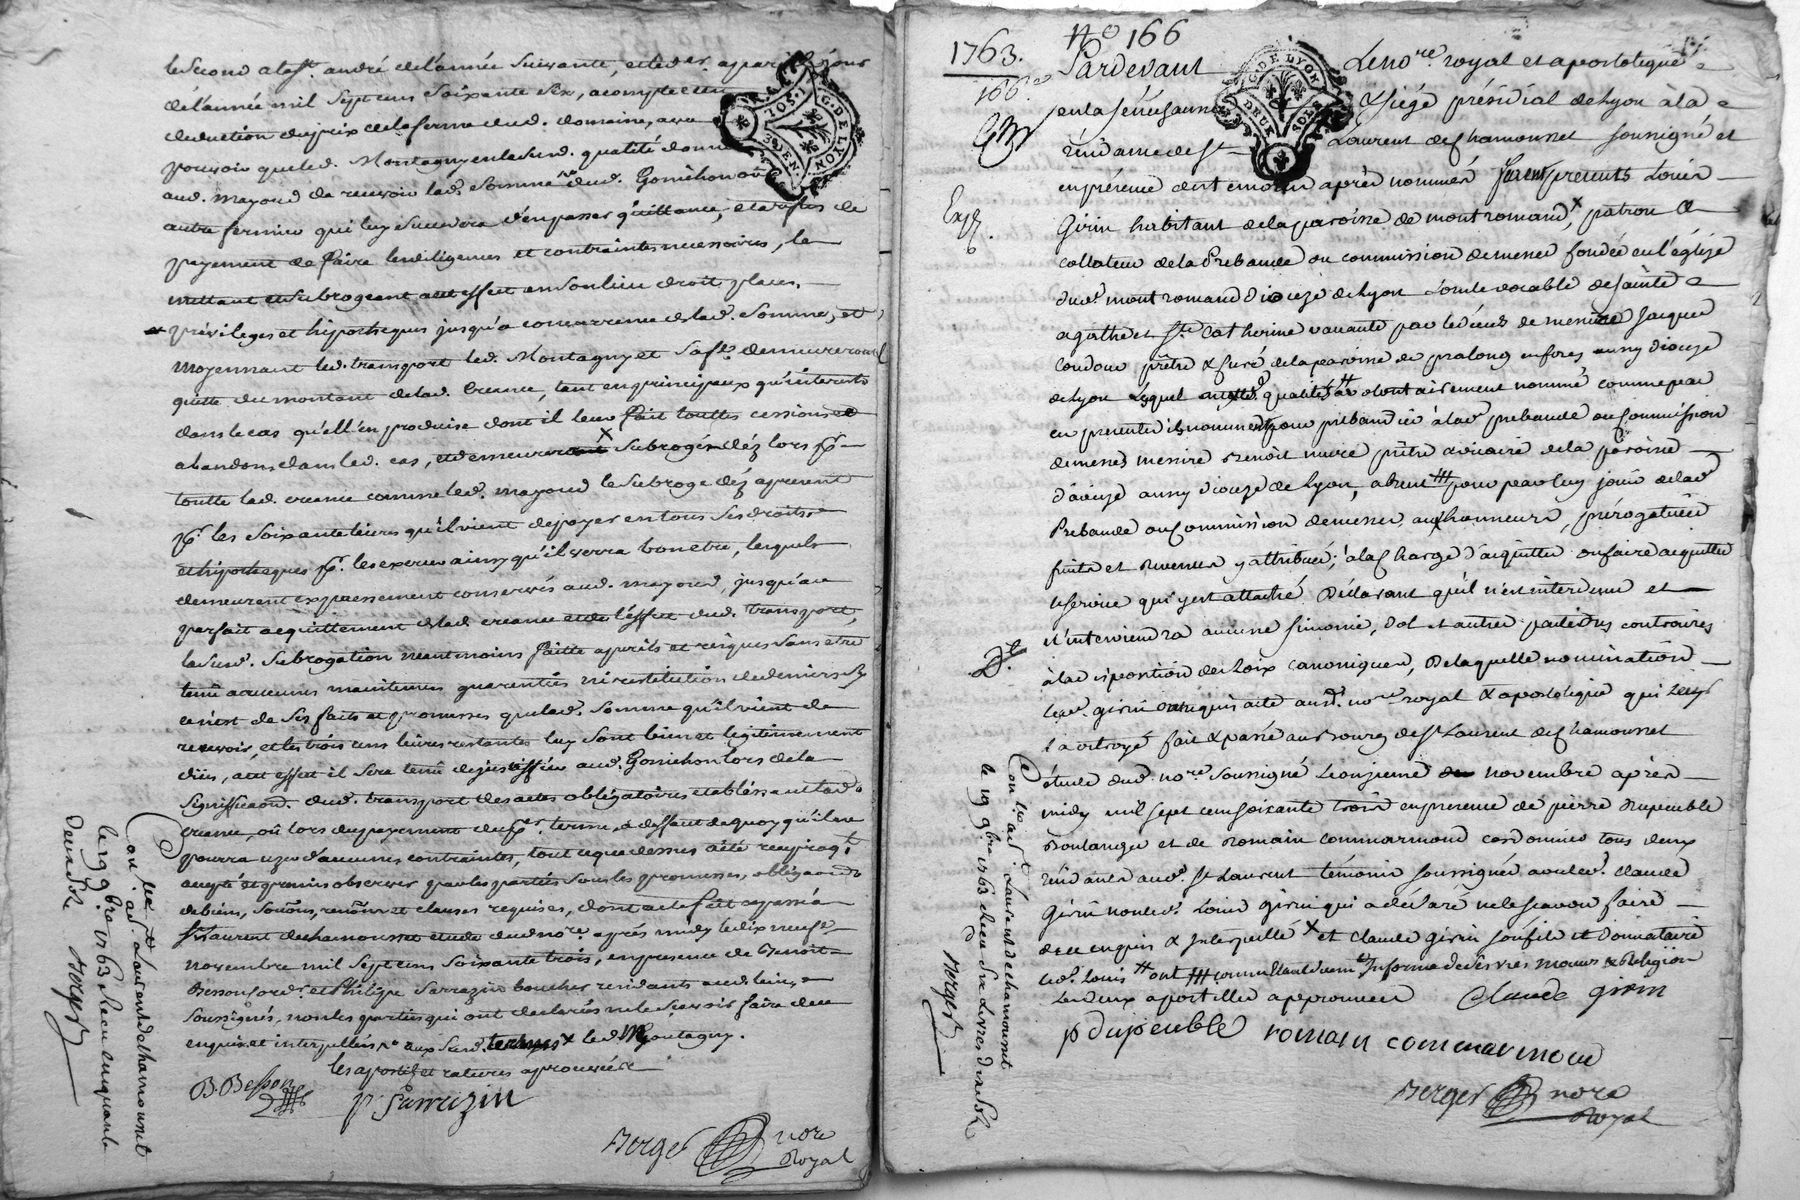 le second a la st. andré de l'année suivante, et le der. a pareil jour
de l'année mil sept cens soixante six, a compte et en
deduction du prix de la ferme dud. domaine, avec
pouvoir que led. Montagny en la susd. qualité donne
aud. mayoud de recevoir lad. somme dud. Gonichon où
autre fermier qui luy succedera d'en passer quittance, et a deffus de
payement de faire les diligences et contraintes necessaires, le
mettant et subrogeant a cet effect en son lieu droit places,
privileges et hipotheques jusqu'a concurrence de lad. somme, et
moyennant led. transport led. Montagny et sa fe. demeureront
quitte du montant de lad. creance, tant en principaux qu'interests
dans le cas qu'ell'en produise dont il leur fait touttes cessions et
abandons dans led. cas, et demeureront subrogés déz lors pr.
toutte lad. creance comme led. mayoud le subroge déz apresent
pr. les soixante livres qu'il vient de payer en tous ses droits
et hipotheques pr. les exercer ainsy qu'il verra bon etre, lesquels
demeurent expressement conservés aud. mayoud, jusqu'au
parfait acquittement de lad. creance et de l'effect dud. transport,
la susd. subrogation neantmoins faitte a perils et risques sans etre
tenu a aucunes maintenues garenties ni restitution de deniers sy
ce n'est de ses faits et promesses que lad. somme qu'il vient de
recevoir, et les trois cens livres restantes luy sont bien et legitimement
dües, a cet effet il sera tenu de justiffier aud. Gonichon lors de la
signiffica[ti]on. dud. transport des actes obligatoires etablissant lad.
creance, où lors du payement du per. terme, a deffaut de quoy qu'il ne
pourra uzer d'aucunes contraintes, tout ce que dessus a été reciproqt.
accepté et promis observer par les parties sous les promesses, obligaons
de biens, soumons, renons et clauses requises, dont acte fait et passé a
st. laurent de chamousset etude dud. nore. après midy le dix neuf
novembre mil sept cens soixante trois, en presence de Benoit
Besson et Philippe Sarrazin boucher residants aud. lieu,
soussignés, non les parties qui ont declarés ne le scavoir faire de ce
enquis et interpellés aux susd. led. Montagny.
les apostil et ratures aprouvées
B. Besson
p. Sarrazin
Berger nore
Royal
Con.lé ad. st. Laurent de chamousset
le 19 9bre 1763 Reçu cinquante
deux sols Berger
1763. No 166
166
Expé.
Pardevant Le nore. royal et apostolique
en la sénéchaussée & siége présidial de Lyon à la
résidance de st Laurent de chamousset soussigné et
en présence des témoins après nommés furent presents Louis
Girin habitant de la paroisse de montromand, patron &
collateur de la Prebande ou commission de messes fondée en l'église
dud. montromand diocéze de lyon sous le vocable de sainte
agathe et ste Catherine vacante par le décès de messire jacques
Coudour prêtre & curé de la paroisse de pralong en forez aud. diocéze
de Lyon Lesquel qualités volontairement nommé comme par
ces presentes ils nomment pour prébandier à lad. prebande ou commission
de messes messire Benoit mure prêtre vicaire de la paroisse
d'aveize aud. diocéze de lyon, absent pour par luy jouir de lad.
Prebande ou commission de messes, aux honneurs, prérogatives
fruits et revenus y attribués; à la charge d'acquitter ou faire acquitter
le service qui y est attaché Déclarant qu'il n'est intervenu et
n'interviendra aucune simonie, dol et autre pactions contraires
à la disposition des Loix canoniques, De laquelle nomination
led. girin requis acte aud. nore. royal & apostolique qui leur
l'a octroyé fait & passé au Bourg de st Laurent de chamousset
étude dud. nore. soussigné le onzieme novembre après
midy mil sept cens soixante trois en presence de pierre Dupeuble
Boulanger et de Romain commarmond cordonnier tous deux
résidants aud. st Laurent témoins soussignés avec led. claude
Girin non led. Louis girin qui a déclaré ne le scavoir faire
de ce enquis & interpellé et claude girin son fils et donnataire
led. Louis ont Informé de ses vies moeurs & Religion
Les deux apostilles approuvées claude girin
p Dupeuble romain commarmond
Berger nore
Royal
Con.lé ad. st. Laurent de chamousset
le 19 9bre 1763 Reçu six Livres dix sols
Berger